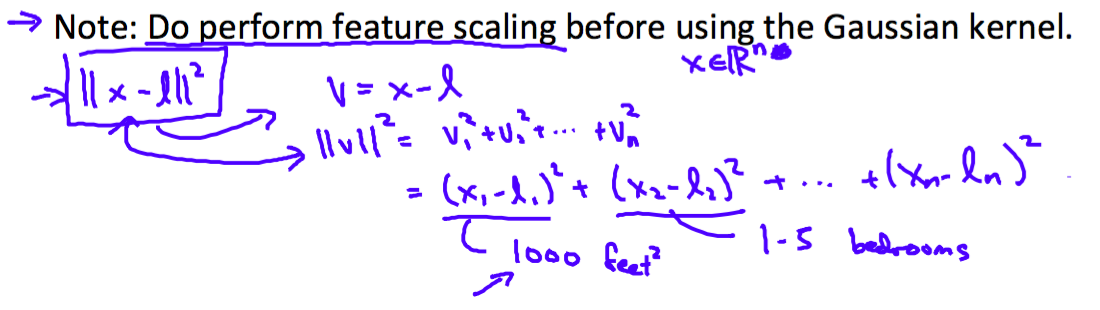 → Note: Do perform feature scaling before using the Gaussian kernel.
x∈ℝⁿ
→ ||x-l||² v = x-l
→ ||v||² = v₁²+v₂²+··· +vₙ²
= (x₁-l₁)² + (x₂-l₂)² + ··· +(xₙ-lₙ)²
1000 feet² 1-5 bedrooms